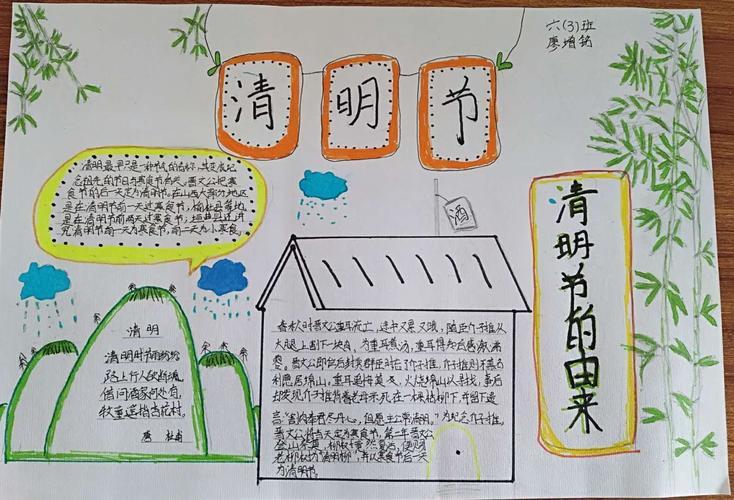 六(3)班
廖增铭
清明节
清明最早只是一种节气的名称,其变成纪
念祖先的节日与寒食节有关,晋文公把寒
食节的后一天定为清明节,在山西大部分地区
是在清明节前一天过寒食节,榆社县等地
是在清明节前两天过寒食节,垣曲县还讲
究清明节前一天为寒食节,前二天为小寒食。
酒
清明节的由来
清明
清明时节雨纷纷
路上行人欲断魂,
借问酒家何处有,
牧童遥指杏花村.
唐 杜
春秋时晋文公重耳流亡,途中又累又饿,随臣介子推从
大腿上割下一块肉,为重耳煮汤,重耳得知后感激
晋文公即位后封赏群臣时忘了介子推,介子推则不慕名
利隐居绵山,重耳火烧绵山以寻找,事后
却发现介子推背着老母死在一棵枯柳下,并留下遗
言:“割肉奉君尽丹心,但愿主公常清明。”为纪念介子推,
晋文公将当天定为寒食节,第二年晋文公
登山祭奠,柳树便
老柳树为“清明柳”,并以寒食节后一天
为清明节。